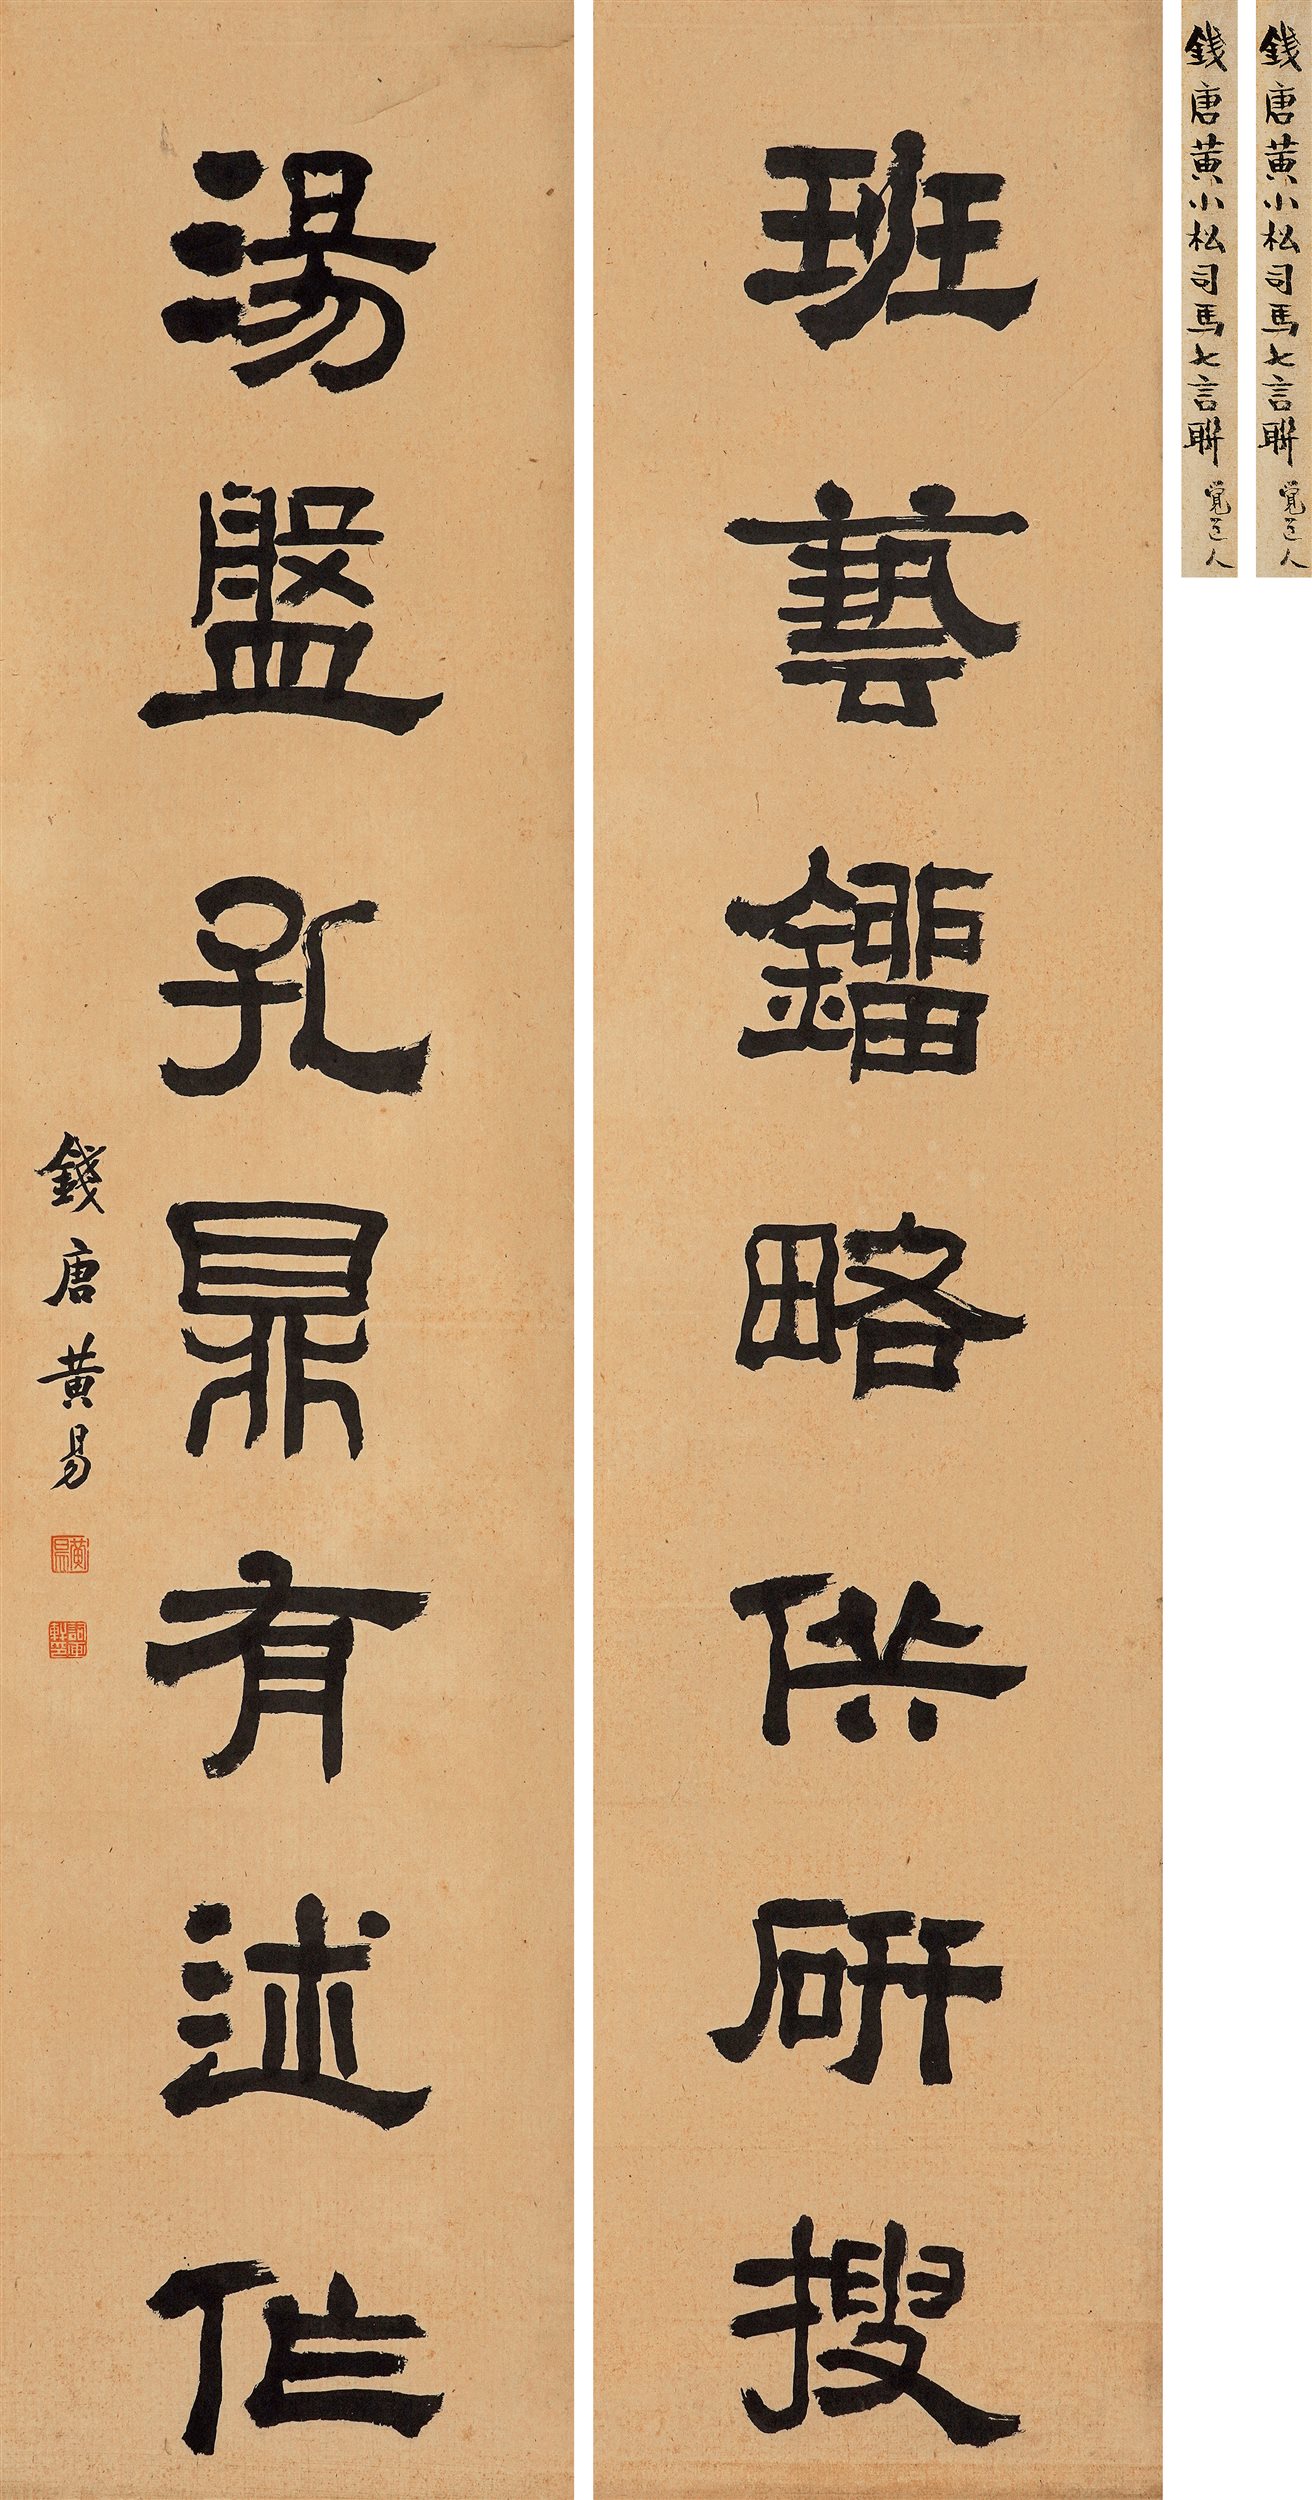 班藝鐂略供研搜
湯盤孔鼎有述作
錢唐黃易
黃易
錢唐黃小松司馬七言聯 覺道人
錢唐黃小松司馬七言聯 覺道人